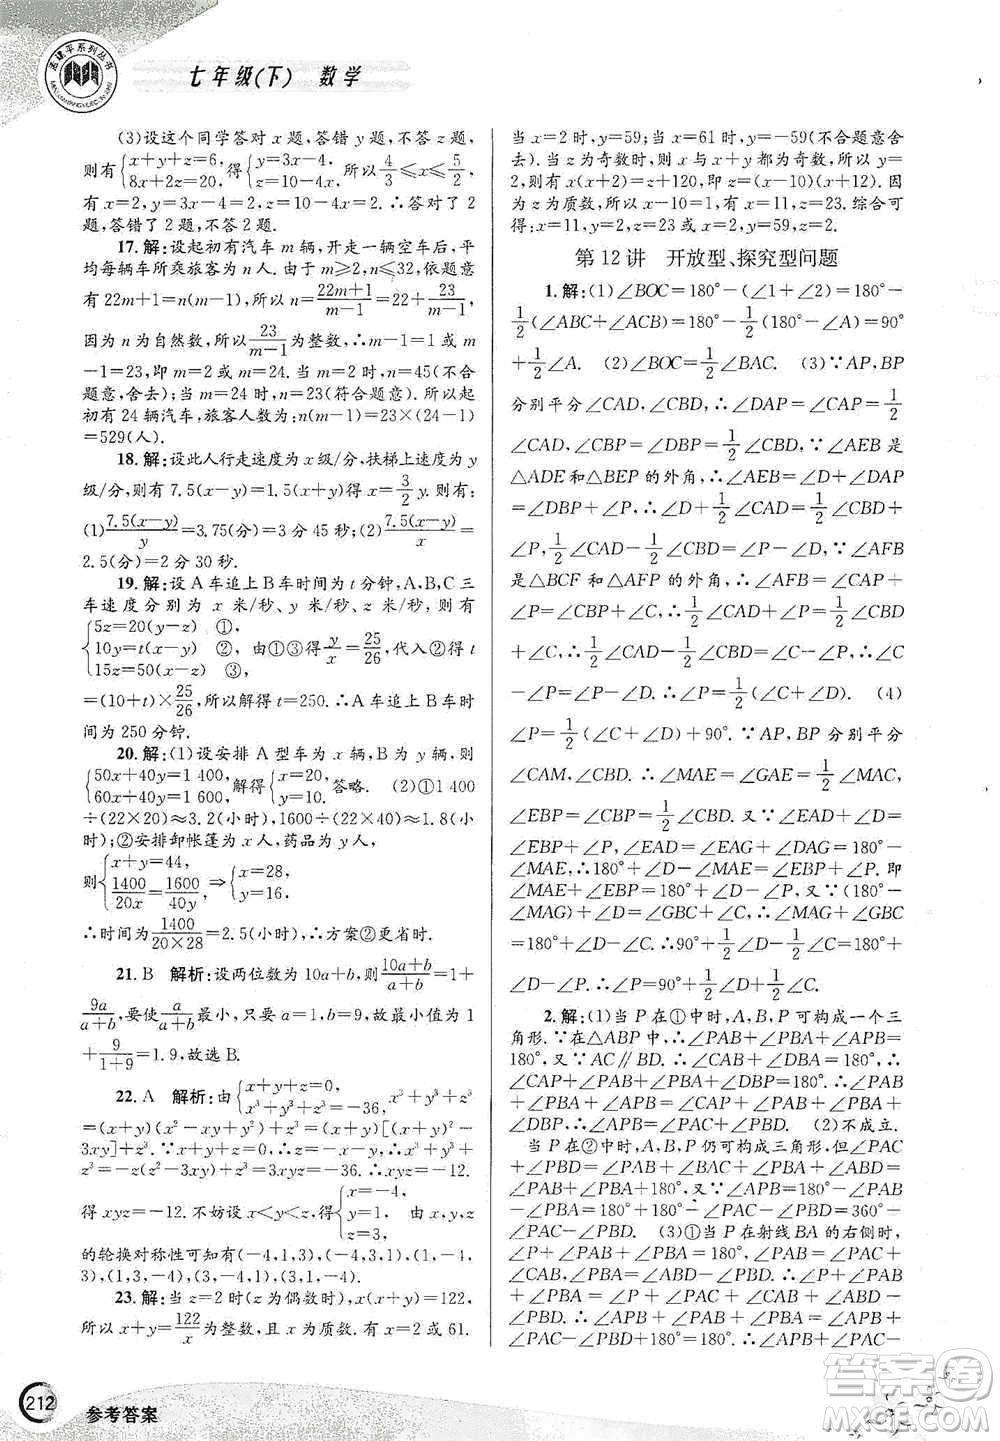 孟建平系列丛书
七年级(下) 数学
(3)设这个同学答对 x 题,答错 y 题,不答 z 题,
则有{x+y+z=6, 8x+2z=20, 得{y=3x-4, z=10-4x, 所以4/3≤x≤5/2,
有 x=2,y=2,z=10-4x=2.∴答对了 2
题,答错了 2 题,不答 2 题.
17. 解:设起初有汽车 m 辆,开走一辆空车后,平
均每车所乘旅客为 n 人. 由于 m≥2,n≤32,依题意
有 22m+1=n(m-1),所以 n=(22m+1)/(m-1)=22+23/(m-1),
因为 n 为自然数,所以23/(m-1)为整数,∴m-1=1,或 m
-1=23,即 m=2 或 m=24. 当 m=2 时,n=45(不合
题意,舍去);当 m=24 时,n=23(符合题意). ∴起
初有 24 辆汽车,旅客人数为:n(m-1)=23×(24-1)
=529(人).
18. 解:设此人行走速度为 x 级/分,扶梯上速度为 y
级/分,则有 7.5(x-y)=1.5(x+y)得 x=3/2 y. 则有:
(1)7.5(x-y)/y=3.75(分)=3 分 45 秒;(2)7.5(x-y)/x=
2.5(分)=2 分 30 秒.
19. 解:设 A 车追上 B 车时间为 t 分钟,A、B、C 三
车速度分别为 x 米/秒、y 米/秒、z 米/秒,则有
{5z=20(y-z) ①,
10y=t(x-y) ②, 由①③得y/x=25/26, 代入②得 t
15z=50(x-z) ③,
=(10+t)×25/26,所以解得 t=250. ∴A 车追上 B 车时
间为 250 分钟.
20. 解:(1)设安排 A 型车为 x 辆,B 为 y 辆,则
{50x+40y=1 400, 60x+40y=1 600, 解得{x=20, y=10. 答略. (2)①1 400
÷(22×20)≈3.2(小时),1600÷(22×40)≈1.8(小
时);②安排卸帐篷为 x 人,药品为 y 人,
则{x+y=44, 1400/20x=1600/40y ⇒{x=28, y=16.
∴时间为1400/(20×28)=2.5(小时),∴方案②更省时.
21. B 解析:设两位数为 10a+b,则(10a+b)/(a+b)=1+
9a/(a+b),要使a/(a+b)最小,只要 a=1,b=9. 故最小值为 1
+9/(1+9)=1.9,故选 B.
22. A 解析:由{x+y+z=0, x³+y³+z³=-36, x³+y³+z³
=(x+y)(x²-xy+y²)+z³=(x+y)[(x+y)²-
3xy]+z³=-z(z²-3xy)+z³=-36. ∴xyz=-12.
得 xyz=-12. 不妨设 x<y<z,则{x=-4, y=1, z=3. 由 x,y,z
的轮换对称性可知有(-4,1,3),(-4,3,1),(1,-4,
3),(1,3,-4),(3,-4,1),(3,1,-4).
23. 解:当 z=2 时(z 为偶数时),x(x+y)=122,
所以 x+y=122/x为整数,且 x 为质数. 可得 x=2 或 61.
当 x=2 时,y=59;当 x=61 时,y=-59(不合题意舍
去). 当 z 为奇数时,则 x 与 x+y 都为奇数,所以 y=
2,则 x(x+2)=z+120,即 z=(x-10)(x+12). 因
为 z 为质数,所以有:x-10=1,x=11,z=23. 综合可
得:x=11,y=2,z=23 或 x=2,y=59,z=2.
第 12 讲 开放型、探究型问题
1. 解:(1)∠BOC=180°-(∠1+∠2)=180°-
1/2(∠ABC+∠ACB)=180°-1/2(180°-∠A)=90°
+1/2∠A. (2)∠BOC=1/2∠BAC. (3)∵AP,BP
分别平分∠CAD,∠CBD,∴∠DAP=∠CAP=1/2
∠CAD,∠CBP=∠DBP=1/2∠CBD,∵∠AEB 是
△ADE 和△BEP 的外角,∴∠AEB=∠D+∠DAP
=∠DBP+∠P,∴∠D+1/2∠CAD=1/2∠CBD+
∠P,即1/2∠CAD-1/2∠CBD=∠P-∠D,∵∠AFB
是△BCF 和△APF 的外角,∴∠AFB=∠CAP+
∠P=∠CBP+∠C,∴1/2∠CAD+∠P=1/2∠CBD+
∠C,∴1/2∠CAD-1/2∠CBD=∠C-∠P,∴∠C
-∠P=∠P-∠D. ∴∠P=1/2(∠C+∠D). (4)
∠P=1/2(∠C+∠D)+90°. ∵AP,BP 分别平分
∠CAM,∠CBD. ∴∠MAE=∠GAE=1/2∠MAC,
∠EBP=∠CBP=1/2∠CBD. 又∵∠MAE+∠D=
∠EBP+∠P,∠EAD=∠EAG+∠DAG=180°-
∠MAE. ∴180°-∠MAE+∠D=∠EBP+∠P. 即
∠MAE+∠EBP=180°+∠D-∠P. 又∵(180°-
∠MAG)+∠D=∠GBC+∠C. ∴∠MAG+∠GBC
=180°+∠D-∠C. ∴90°+1/2∠D-1/2∠C=180°+
∠D-∠P. ∴∠P=90°+1/2∠C+1/2∠D.
2. 解:(1)当 P 在①中时,A,B,P 可构成一个三
角形. ∵在△ABP 中,∠PAB+∠PBA+∠APB=
180°. 又∵AC∥BD. ∴∠CAB+∠DBA=180°. ∴
∠CAP+∠PAB+∠PBA+∠DBP=180°. ∴∠APB
+∠PBA+∠PAB=∠CAP+∠DBP+∠PAB+
∠PBA,∴∠APB=∠PAC+∠PBD. (2)不成立.
当 P 在②中时,A,B,P 仍可构成三角形,但∠PAC
+∠PBD=∠PAB+∠CAB+∠PBA+∠ABD
=∠PAB+∠PBA+180°. 又∵∠APB=180°-
∠PAB-∠PBA,∴∠APB+∠PBD=360°-
∠PAC-∠PBD. (3)①当 P 在射线 BA 的右侧时,
∠P+∠PAB+∠PBA=180°,∠PAB=∠PAC-
∠CAB,∠PBA=∠PBD. ∴∠P+∠PAC-∠CAB
+∠PBD=180°. ∴∠APB+∠PAC+∠CAB+
∠PBD=180°+∠CAB,∴∠P+∠PAC-∠CAB+
∠PAC-∠PBD+180°=180°. ∴∠APB+∠PAC+
212
参考答案
答案圈
MXQE.COM